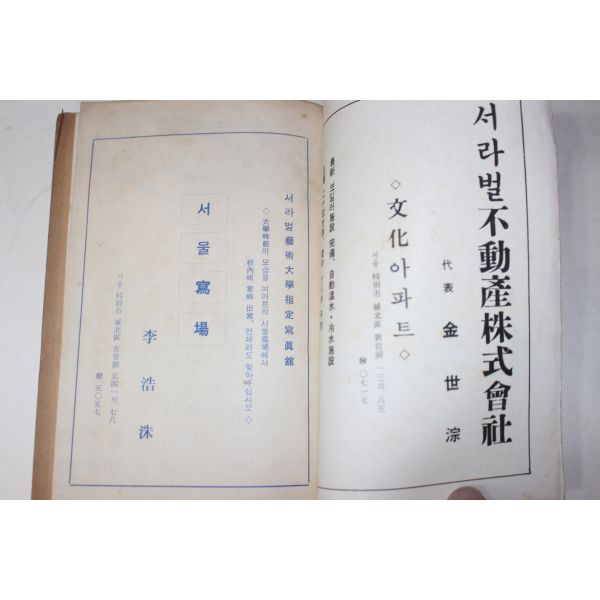 서라벌不動產株式會社
代表 金世淙
◇文化아파트◇
서울 特別市 城北區 敦岩洞 一三의 八五
最新 보일러施設 完備、自動溫水・冷水施設
서라벌藝術大學指定寫眞館
◇大學時節의 모습을 여러분의 서울寫場에서
校內에 常時 出寫、언제라도 찾아주십시오◇
서울寫場
李浩洙
서울 特別市 城北區 吉音洞 五四一의 七八
五〇五七